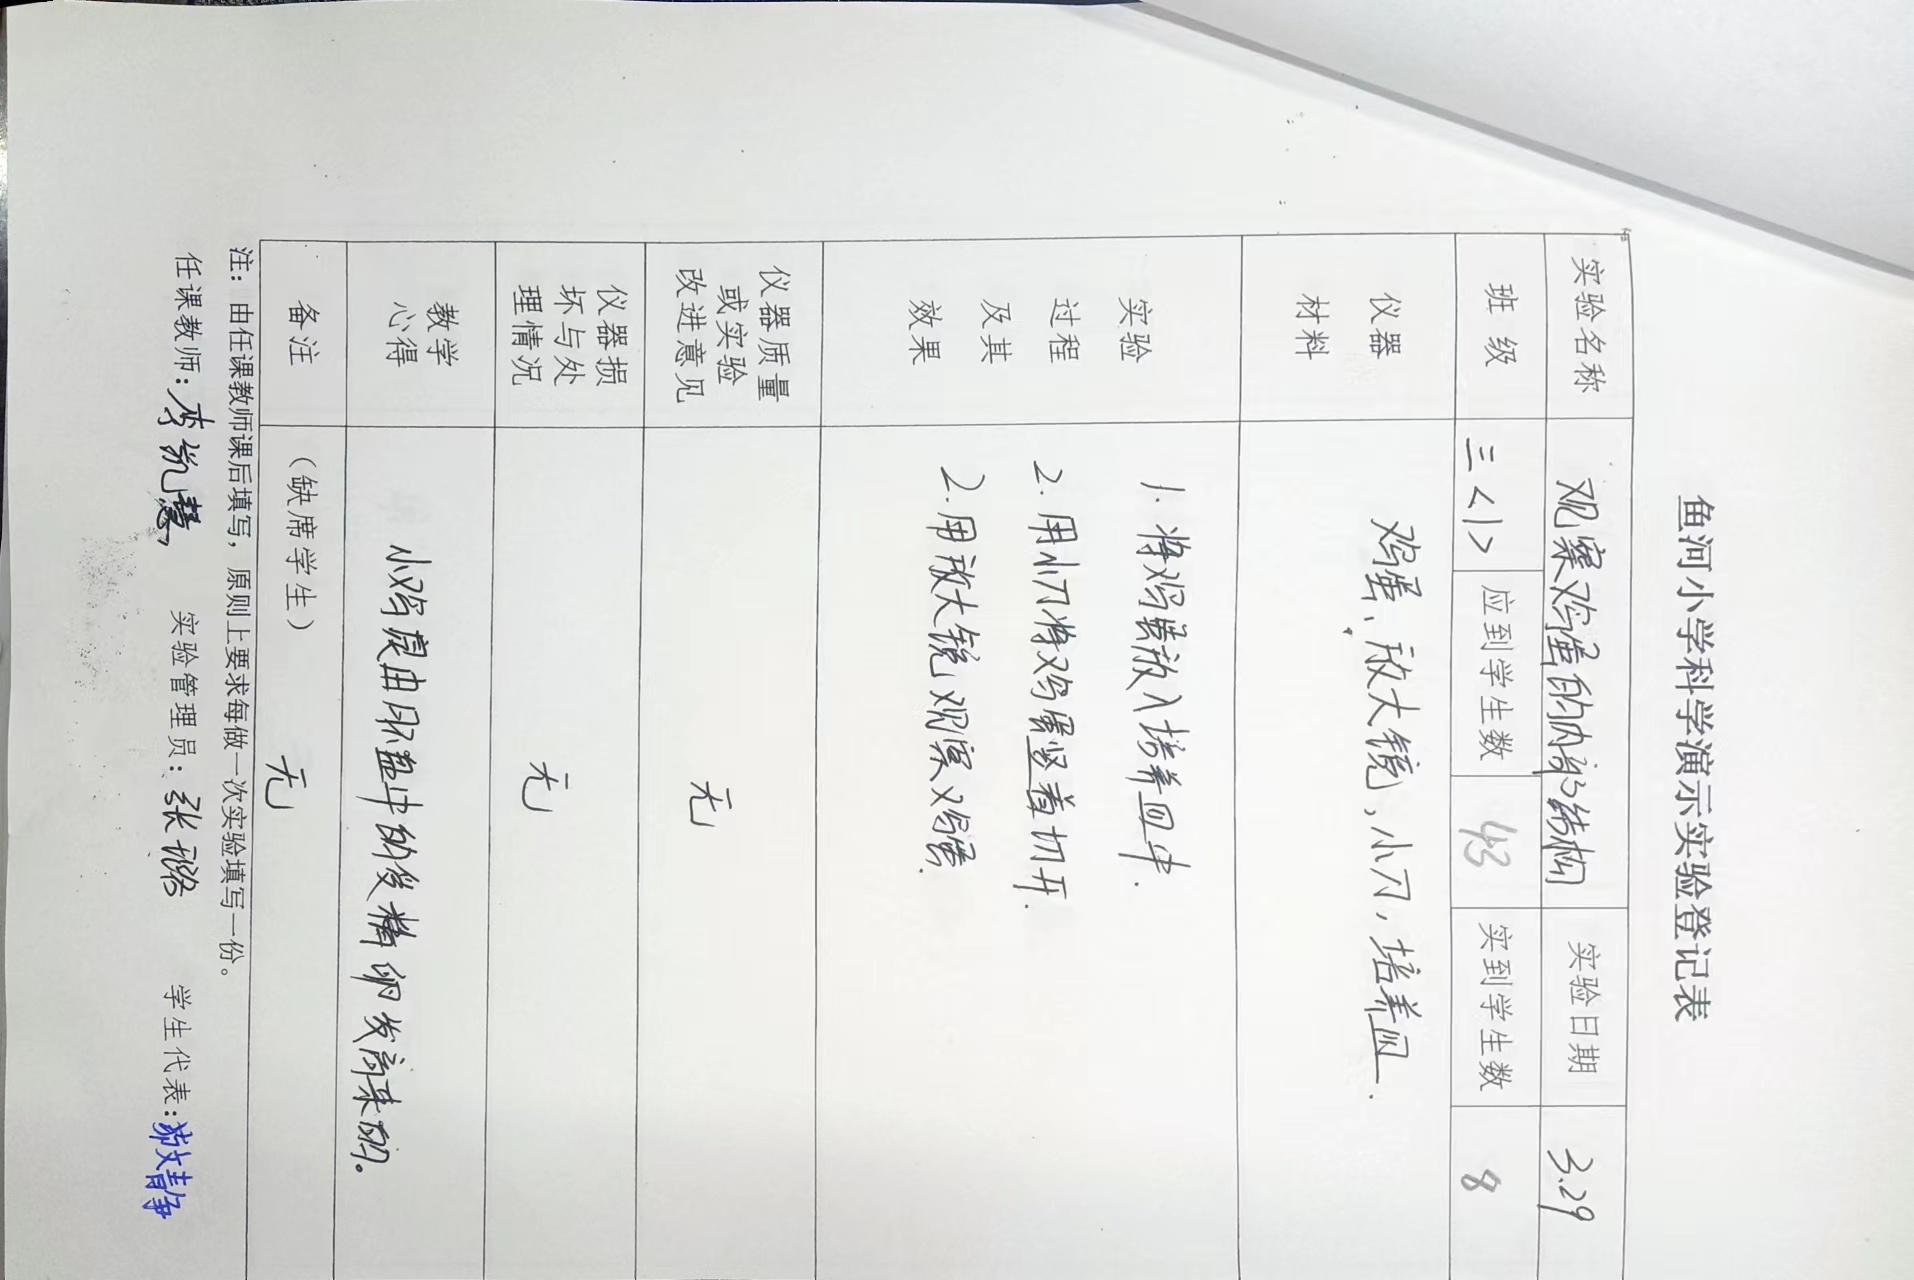 鱼河小学科学演示实验登记表
实验名称 观察鸡蛋的内部结构 实验日期 3.29
班 级 三<1> 应到学生数 43 实到学生数 8
仪器
材料
鸡蛋、放大镜,小刀,培养皿.
实验
过程
及其
效果
1. 将鸡蛋放入培养皿中.
2. 用小刀将鸡蛋竖着切开.
2. 用放大镜观察鸡蛋.
仪器质量
或实验
改进意见
无
仪器损
坏与处
理情况
无
教学
心得
小鸡是由胚盘中的受精卵发育来的。
备注
(缺席学生) 无
注:由任课教师课后填写,原则上要求每做一次实验填写一份。
任课教师: 李 慧 实验管理员: 张璐 学生代表: 静